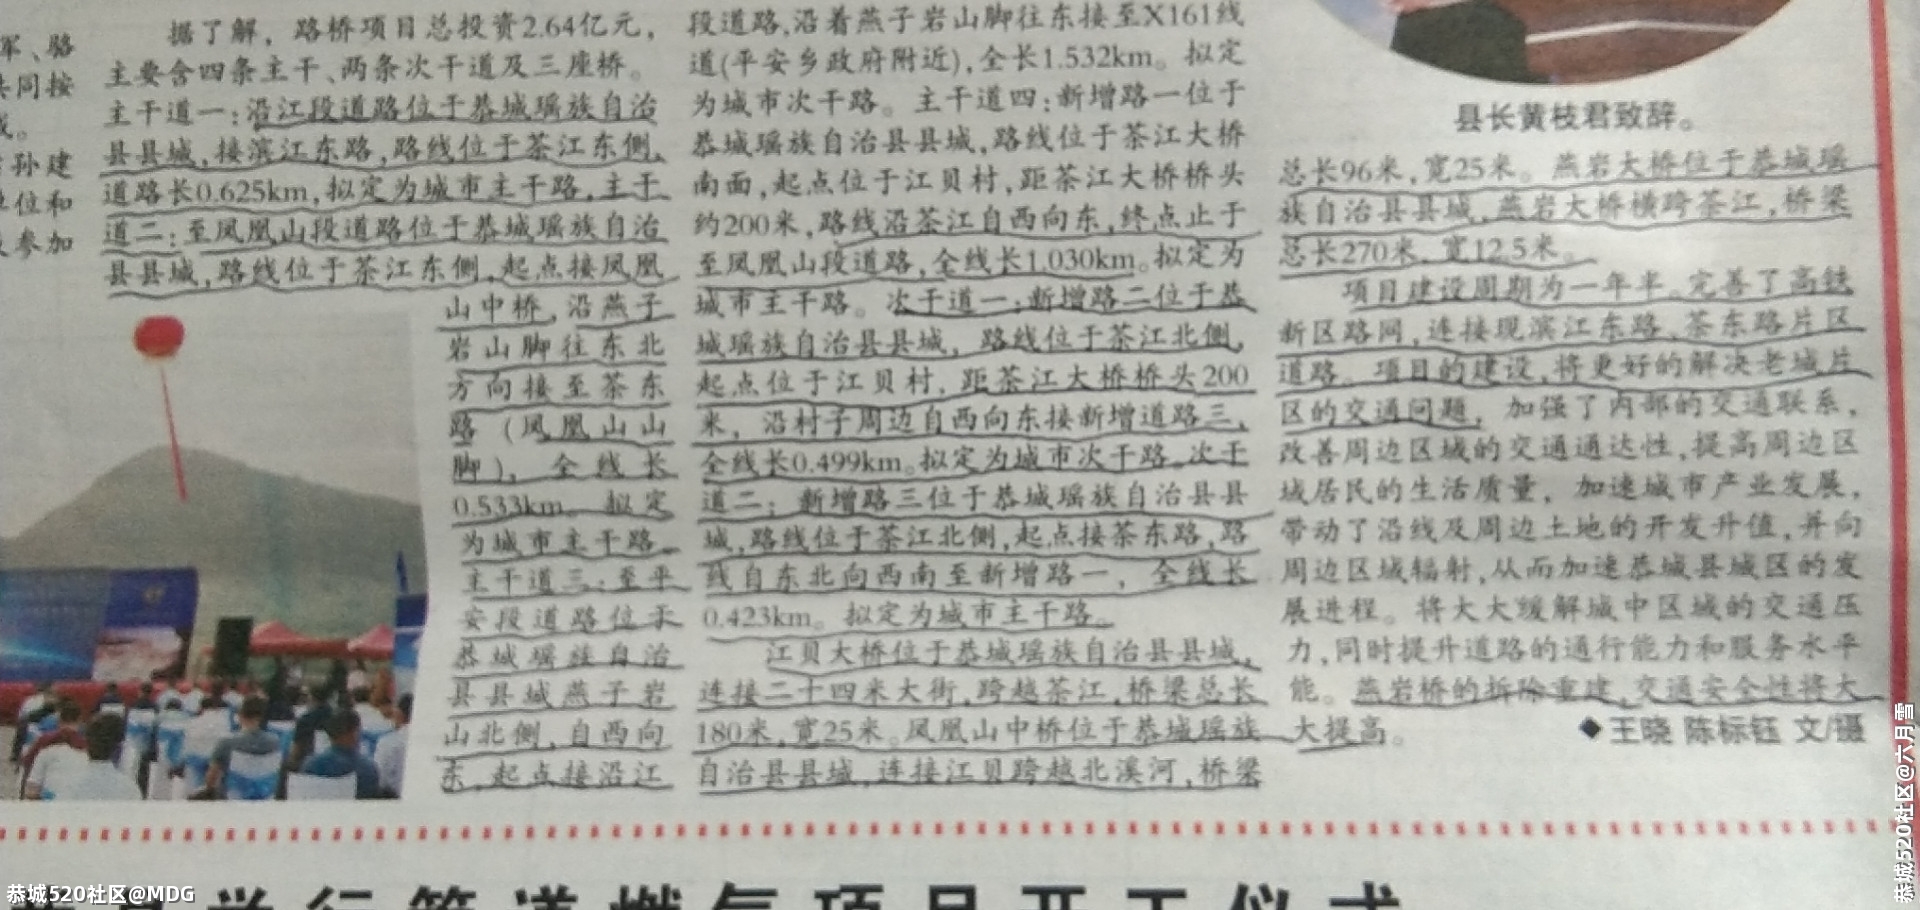 军、骆
共同按
孙建
单位和
参加
据了解，路桥项目总投资2.64亿元，
主要含四条主干、两条次干道及三座桥。
主干道一：沿江段道路位于恭城瑶族自治
县县城，接滨江东路，路线位于茶江东侧，
道路长0.625km，拟定为城市主干路，主干
道二：至凤凰山段道路位于恭城瑶族自治
县县城，路线位于茶江东侧，起点接凤凰
山中桥，沿燕子
岩山脚往东北
方向接至茶东
路（凤凰山山
脚），全线长
0.533km。拟定
为城市主干路。
主干道三：至平
安段道路位于
恭城瑶族自治
县县城燕子岩
山北侧，自西向
东，起点接沿江
段道路，沿着燕子岩山脚往东接至X161线
道（平安乡政府附近），全长1.532km。拟定
为城市次干路。主干道四：新增路一位于
恭城瑶族自治县县城，路线位于茶江大桥
南面，起点位于江贝村，距茶江大桥桥头
约200米，路线沿茶江自西向东，终点止于
至凤凰山段道路，全线长1.030km。拟定为
城市主干路。次干道一：新增路二位于恭
城瑶族自治县县城，路线位于茶江北侧，
起点位于江贝村，距茶江大桥桥头200
米，沿村子周边自西向东接新增道路三，
全线长0.499km。拟定为城市次干路。次干
道二：新增路三位于恭城瑶族自治县县
城，路线位于茶江北侧，起点接茶东路，路
线自东北向西南至新增路一，全线长
0.423km。拟定为城市主干路。
江贝大桥位于恭城瑶族自治县县城，
连接二十四米大街，跨越茶江，桥梁总长
180米，宽25米。凤凰山中桥位于恭城瑶族
自治县县城，连接江贝跨越北溪河，桥梁
县长黄枝君致辞。
总长96米，宽25米。燕岩大桥位于恭城瑶
族自治县县城，燕岩大桥横跨茶江，桥梁
总长270米，宽12.5米。
项目建设周期为一年半。完善了高铁
新区路网，连接现滨江东路、茶东路片区
道路。项目的建设，将更好的解决老城片
区的交通问题，加强了内部的交通联系，
改善周边区域的交通通达性，提高周边区
域居民的生活质量，加速城市产业发展，
带动了沿线及周边土地的开发升值，并向
周边区域辐射，从而加速恭城县城区的发
展进程。将大大缓解城中区域的交通压
力，同时提升道路的通行能力和服务水平
能。燕岩桥的拆除重建，交通安全性将大
大提高。
◆王晓 陈标钰 文/摄
举行管道燃气项目开工仪式
恭城520社区@MDG
恭城520社区@六月雪